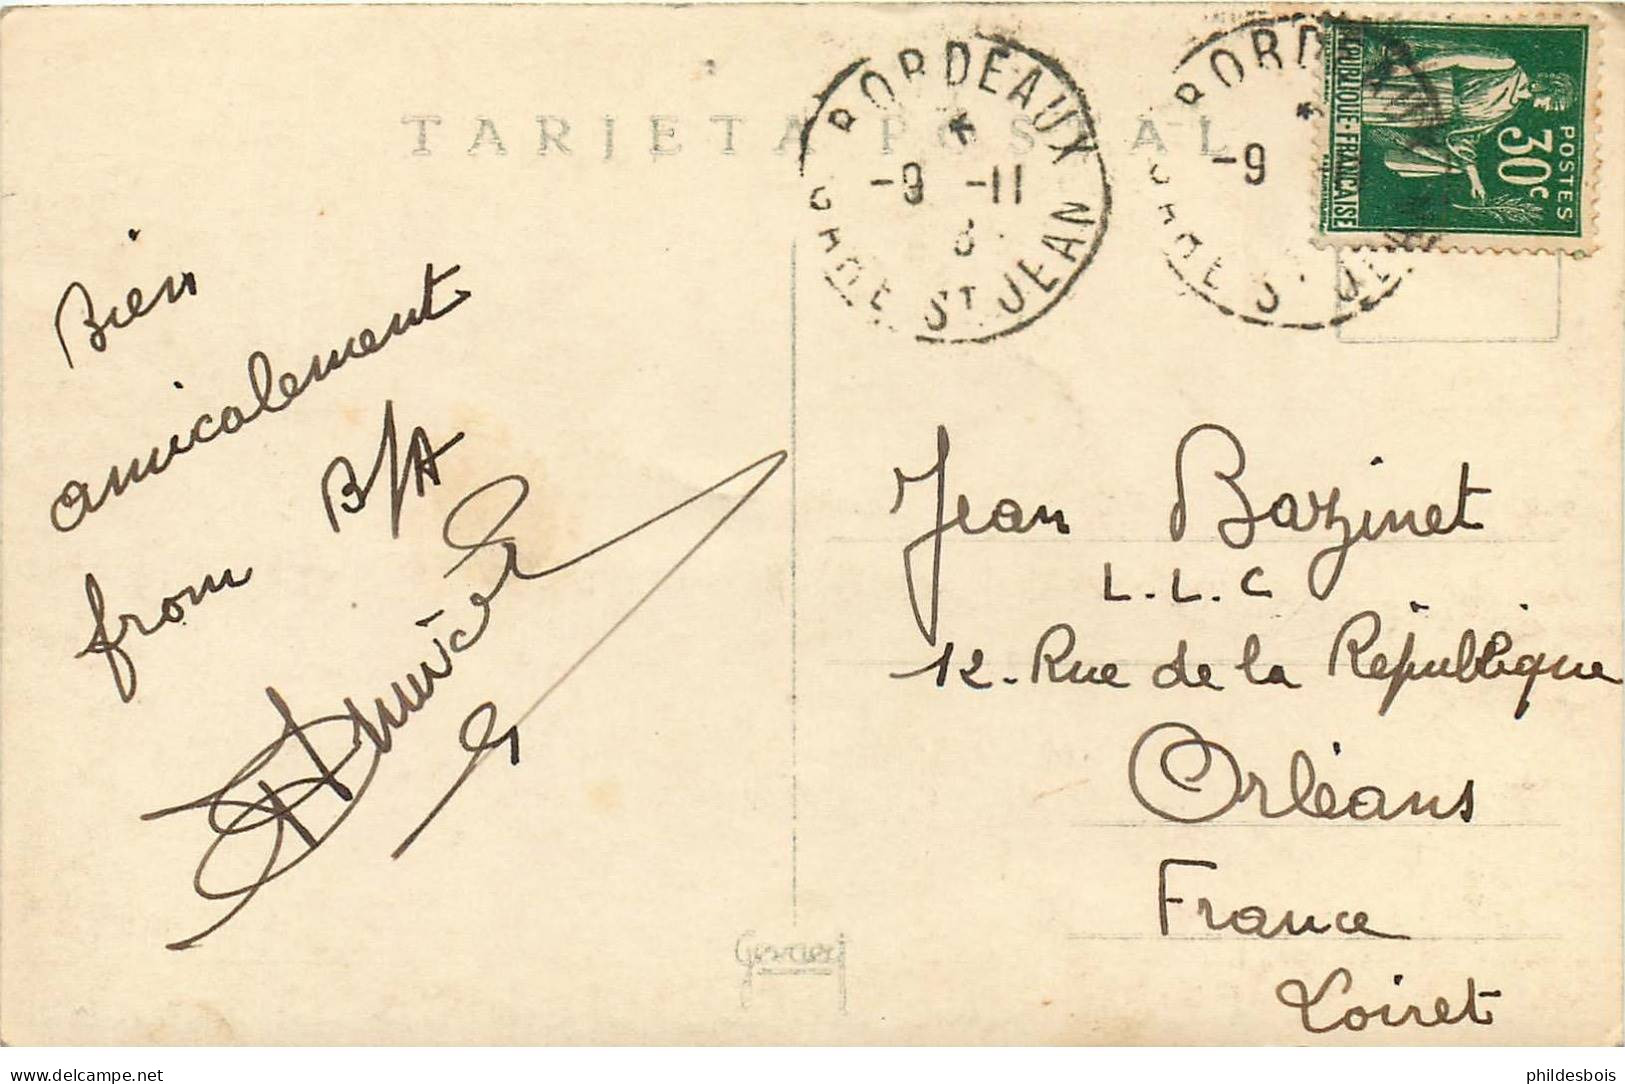 TARJETA POSTAL
BORDEAUX
-9 -11
3
GARE ST JEAN
BORDEAUX
-9
GARE ST JEAN
REPUBLIQUE·FRANÇAISE
30c
POSTES
Bien
amicalement
from B/A
Jean Bazinet
L.L.C
12. Rue de la République
Orléans
France
Loiret
delcampe.net
phildesbois